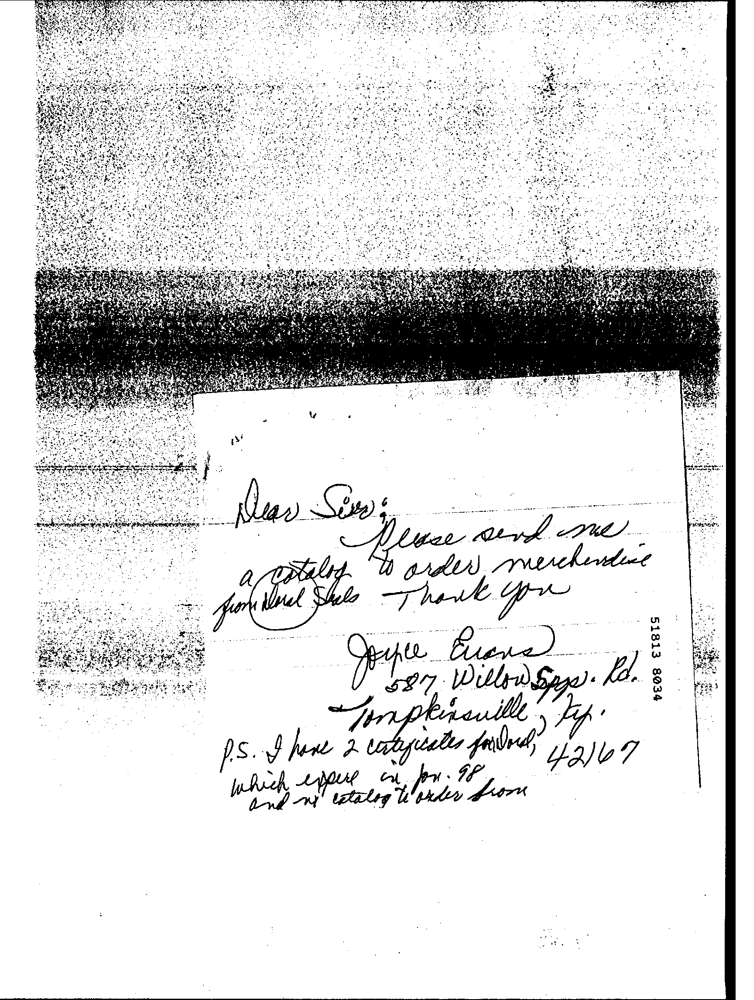 Dear Sirs:
Please send me
a catalog to order merchendise
from Doral Seals Thank you
Joyce Evans
587 Willow Spgs. Rd.
Tompkinsville, Ky.
42167
P.S. I have 2 certificates for Doral,
which expire in Jan. 98
and no catalog to order from
51813 8034